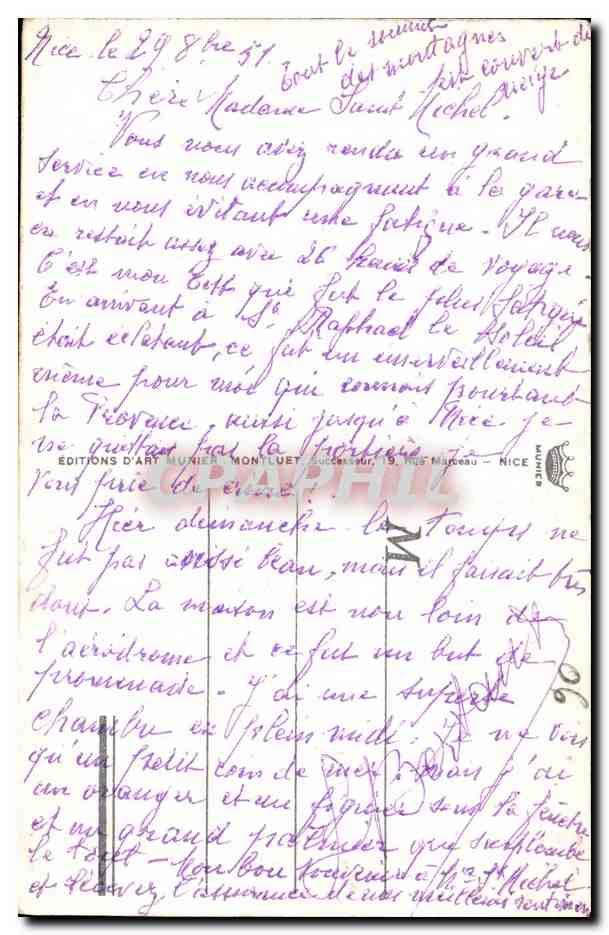 Nice le 29 8bre 51
Tout le sommet
des montagnes
est couvert de
neige
Chère Madame Saint Michel.
Vous nous avez rendu un grand
service en nous accompagnant à la gare
et en nous évitant une fatigue - Il nous
en restait assez avec 26 heures de voyage.
C'est mon qui fut le plus fatigué
En arrivant à St Raphael le soleil
était éclatant, ce fut un émerveillement
même pour moi qui connais pourtant
la Provence, aussi jusqu'à Nice je
ne quittai pas la portière je
EDITIONS D'ART MUNIER, MONTLUET, Successeur, 19, Rue Marceau - NICE
MUNIER
CPAPHIL
vous prie de croire!
Hier dimanche le temps ne
fut pas aussi beau, mais il faisait très
doux. La maison est non loin de
l'aérodrome et ce fut un but de
promenade - J'ai une superbe
chambre en plein midi; je ne vois
qu'un petit coin de mer, mais j'ai
un oranger et un figuier sous la fenêtre
et un grand palmier qui surplombe
le toit - Mon bon souvenir à Mr St Michel
et recevez l'assurance de nos meilleurs sentiments
M
90